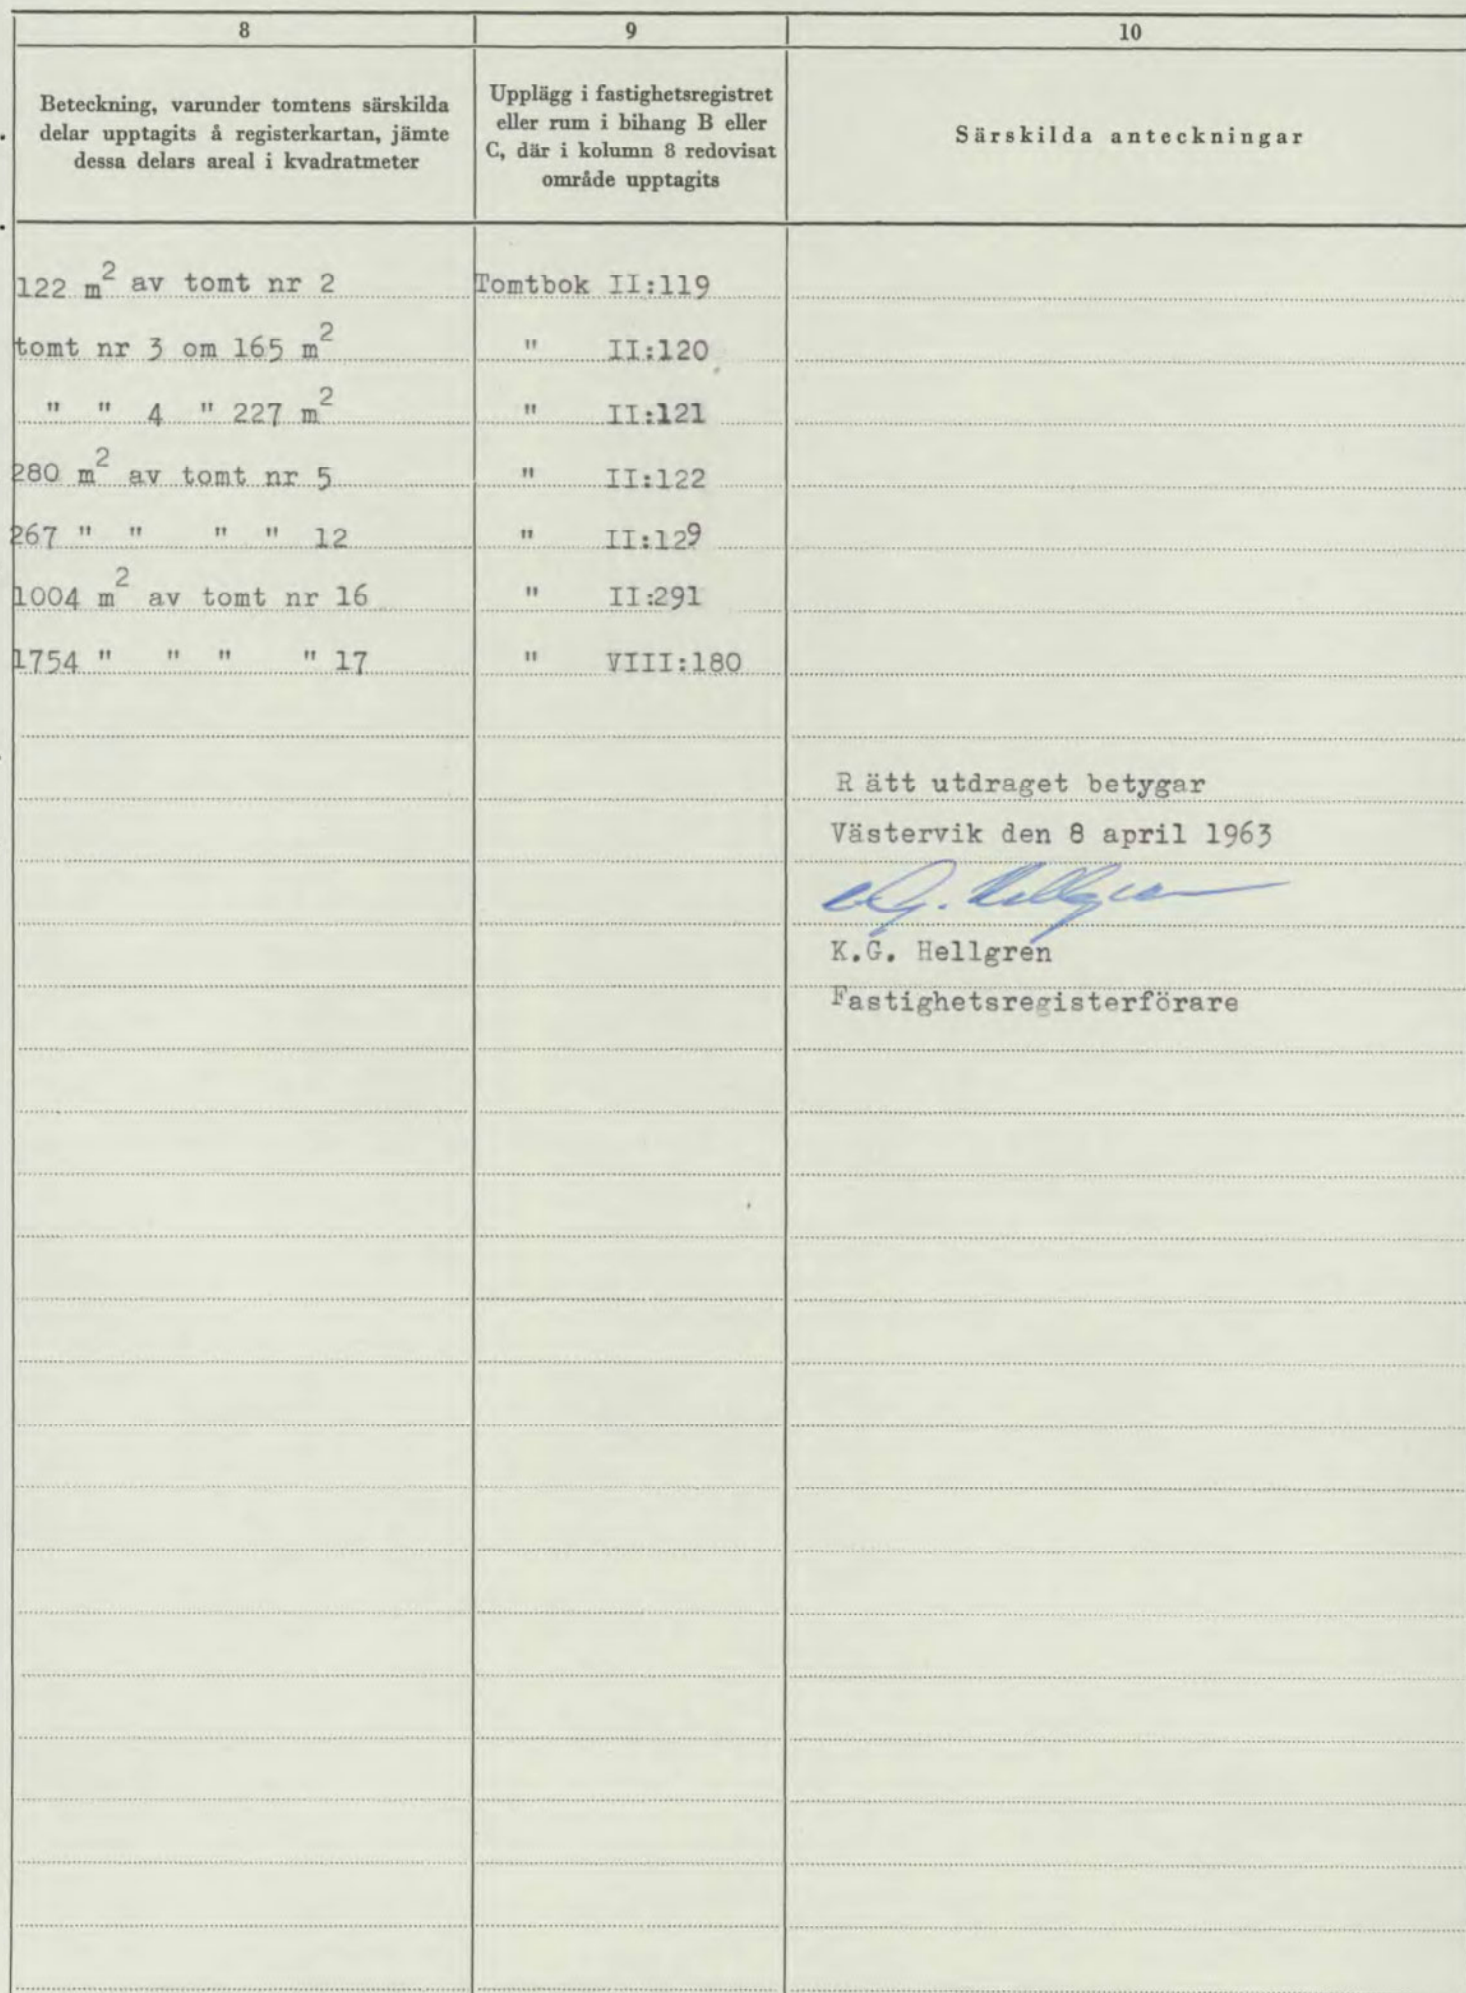 8
9
10
Beteckning, varunder tomtens särskilda
delar upptagits å registerkartan, jämte
dessa delars areal i kvadratmeter
Upplägg i fastighetsregistret
eller rum i bihang B eller
C, där i kolumn 8 redovisat
område upptagits
Särskilda anteckningar
122 m² av tomt nr 2 Tomtbok II:119
tomt nr 3 om 165 m² " II:120
" " 4 " 227 m² " II:121
280 m² av tomt nr 5 " II:122
267 " " " " 12 " II:129
1004 m² av tomt nr 16 " II:291
1754 " " " " 17 " VIII:180
R ätt utdraget betygar
Västervik den 8 april 1963
K.G. Hellgren
K.G. Hellgren
Fastighetsregisterförare